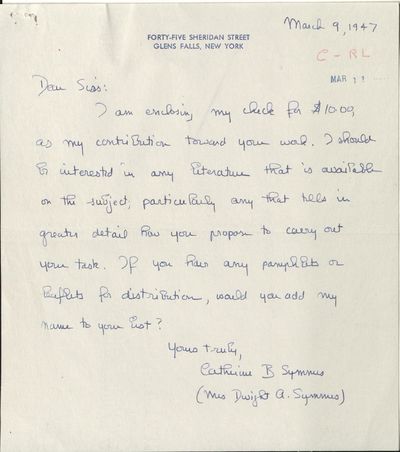 March 9, 1947
FORTY-FIVE SHERIDAN STREET
GLENS FALLS, NEW YORK
C - RL
MAR 11
Dear Sirs:
I am enclosing my check for $10.00,
as my contribution toward your work. I should
be interested in any literature that is available
on the subject, particularly any that tells in
greater detail how you propose to carry out
your task. If you have any pamphlets or
leaflets for distribution, would you add my
name to your list?
Yours truly,
Catherine B Symmes
(Mrs Dwight A. Symmes)